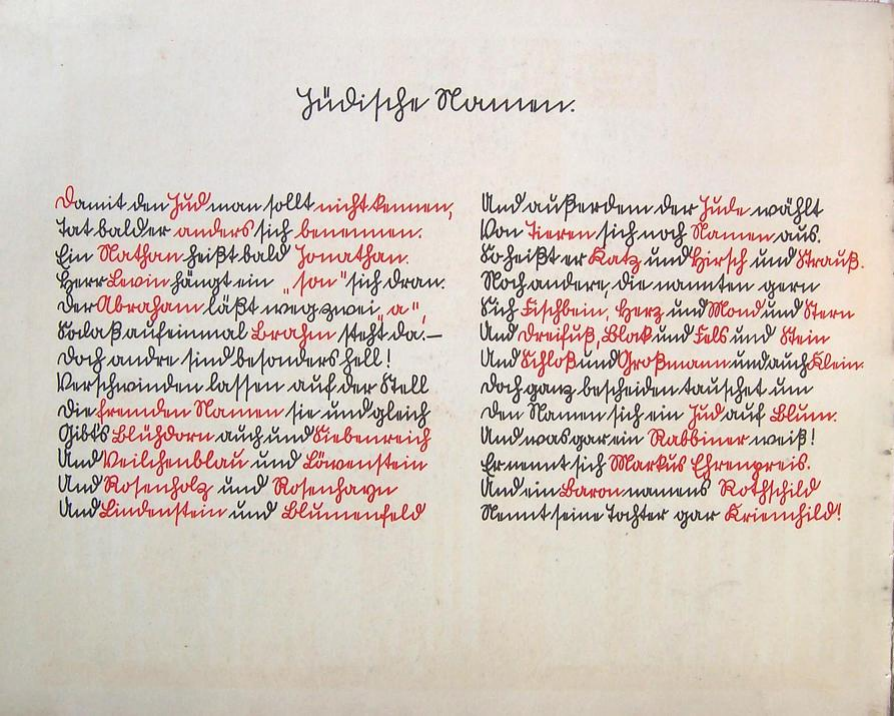 Jüdische Namen.
Damit den Jud man sollt nicht kennen,
Tat bald er anders sich benennen.
Ein Nathan heißt bald Jonathan.
Herr Levin hängt ein „son" sich dran.
Der Abraham läßt weg zwei „a",
Sodaß auf einmal Brahm steht da. —
Doch andre sind besonders hell!
Verschwinden lassen auf der Stell
Die fremden Namen sie und gleich
Gibt's Blühdorn auch und Siebenreich
Und Veilchenblau und Löwenstein
Und Rosenholz und Rosenhayn
Und Lindenstein und Blumenfeld
Und außerdem der Jude wählt
Von Tieren sich noch Namen aus.
So heißt er Katz und Hirsch und Strauß.
Noch andere, die nannten gern
Sich Fischbein, Herz und Mond und Stern
Und Dreifuß, Blak und Fels und Stein
Und Schloß und Großmann und auch Klein.
Doch ganz bescheiden tauschet um
Den Namen sich ein Jud auf Blum.
Und was gar ein Rabbiner weiß!
Er nennt sich Markus Ehrenpreis.
Und ein Baron namens Rothschild
Nennt seine Tochter gar Kriemhild!